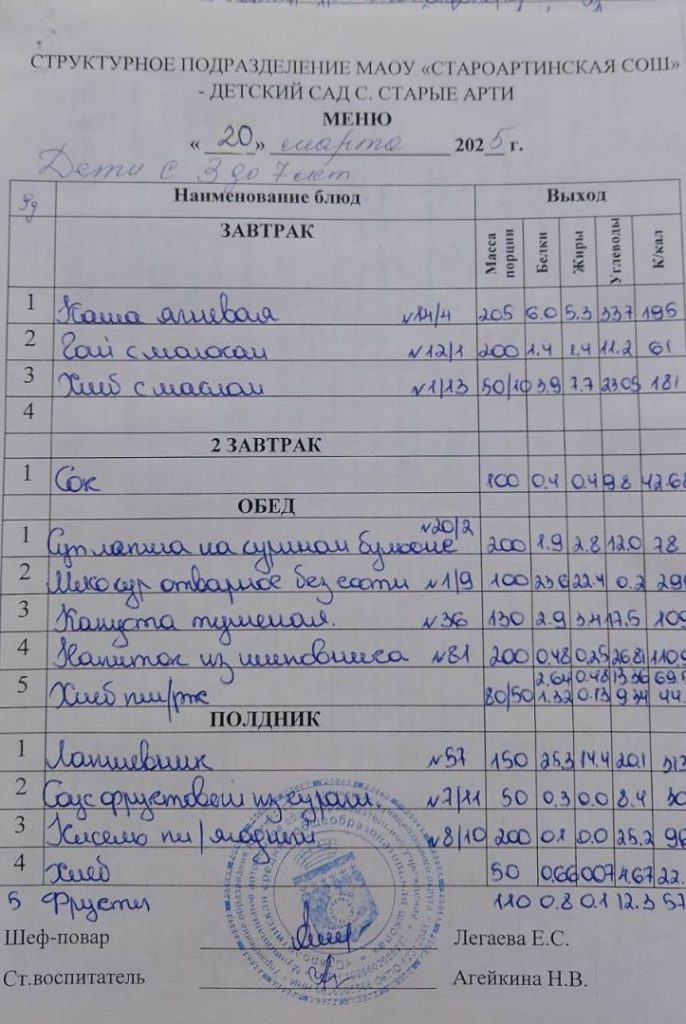 СТРУКТУРНОЕ ПОДРАЗДЕЛЕНИЕ МАОУ «СТАРОАРТИНСКАЯ СОШ»
- ДЕТСКИЙ САД С. СТАРЫЕ АРТИ
МЕНЮ
« 20 » марта 2025 г.
Дети с 3 до 7 лет
Наименование блюд Выход
ЗАВТРАК Масса порции Белки Жиры Углеводы К/кал
1 Каша ячневая №14/4 205 6.0 5.3 337 195
2 Чай с молоком №12/1 200 1.4 1.4 11.2 61
3 Хлеб с маслом №1/13 50/10 3.9 7.7 23.05 181
4
2 ЗАВТРАК
1 Сок 100 0.4 0.4 9.8 42.68
ОБЕД
1 Суп лапша на курином бульоне №20/2 200 1.9 2.8 12.0 78
2 Мясо кур отварное без кости №1/9 100 23.6 22.4 0.2
3 Капуста тушеная. №36 130 2.9 3.4 17.5 109
4 Напиток из шиповника №81 200 0.48 0.25 26.81 110.9
2.64 0.48 13.36
5 Хлеб пш/рж 80/50 1.32 0.13 9.34 44.
ПОЛДНИК
1 Лапшевник №57 150 25.3 14.4 20.1
2 Соус фруктовый из кураги. №7/11 50 0.3 0.0 8.4 30
3 Кисель пл/ягодный №8/10 200 0.1 0.0 25.2 96
4 Хлеб 50 0.66 0.07 4.67 22.
5 Фрукты 110 0.8 0.1 12.3 57
Шеф-повар Легаева Е.С.
Ст.воспитатель Агейкина Н.В.